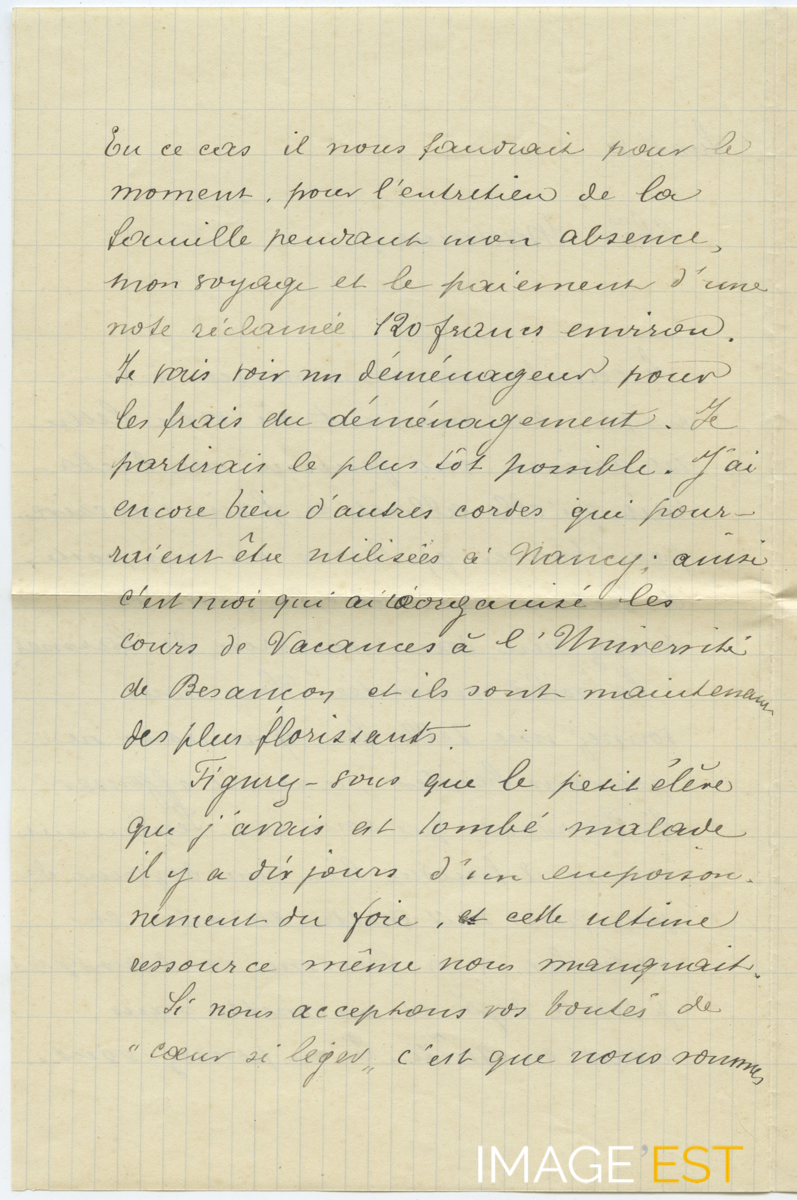 En ce cas il nous faudrait pour le
moment, pour l'entretien de la
famille pendant mon absence,
mon voyage et le paiement d'une
note réclamée 120 francs environ.
Je vais voir un déménageur pour
les frais du déménagement. Je
partirais le plus tôt possible. J'ai
encore bien d'autres cordes qui pour-
raient être utilisées à Nancy; ainsi
c'est moi qui ai réorganisé les
cours de Vacances à l'Université
de Besançon et ils sont maintenant
des plus florissants.
Figurez-vous que le petit élève
que j'avais est tombé malade
il y a dix jours d'un empoison-
nement du foie, et cette ultime
ressource même nous manquait.
Si nous acceptons vos bontés de
"cœur si léger" c'est que nous sommes
IMAGE'EST